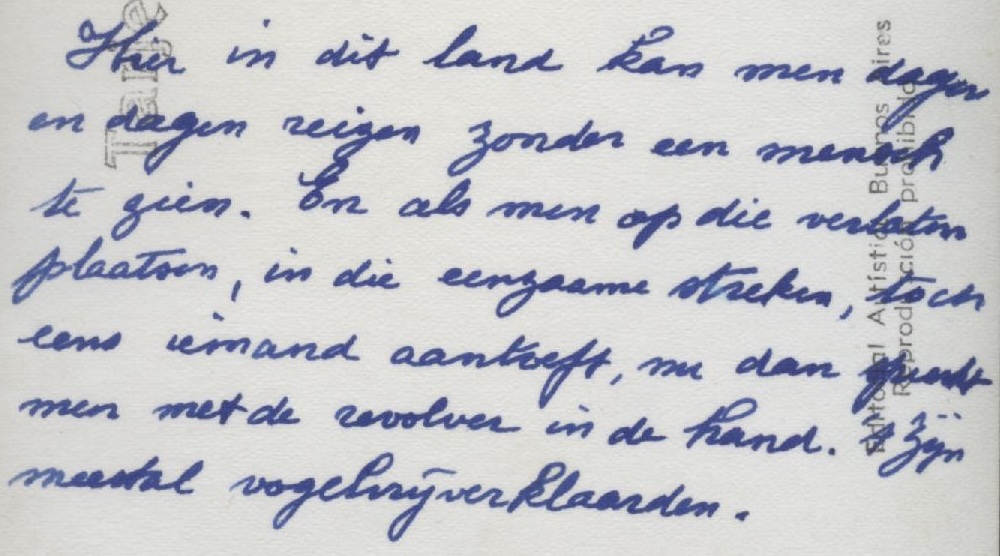 Hier in dit land kan men dagen
en dagen reizen zonder een mensch
te zien. En als men op die verlaten
plaatsen, in die eenzame streken, toch
eens iemand aantreft, nu dan
men met de revolver in de hand. 't Zijn
meestal vogelvrijverklaarden.
Tarje
Editorial Artística Buenos Aires
Reproducción prohibida